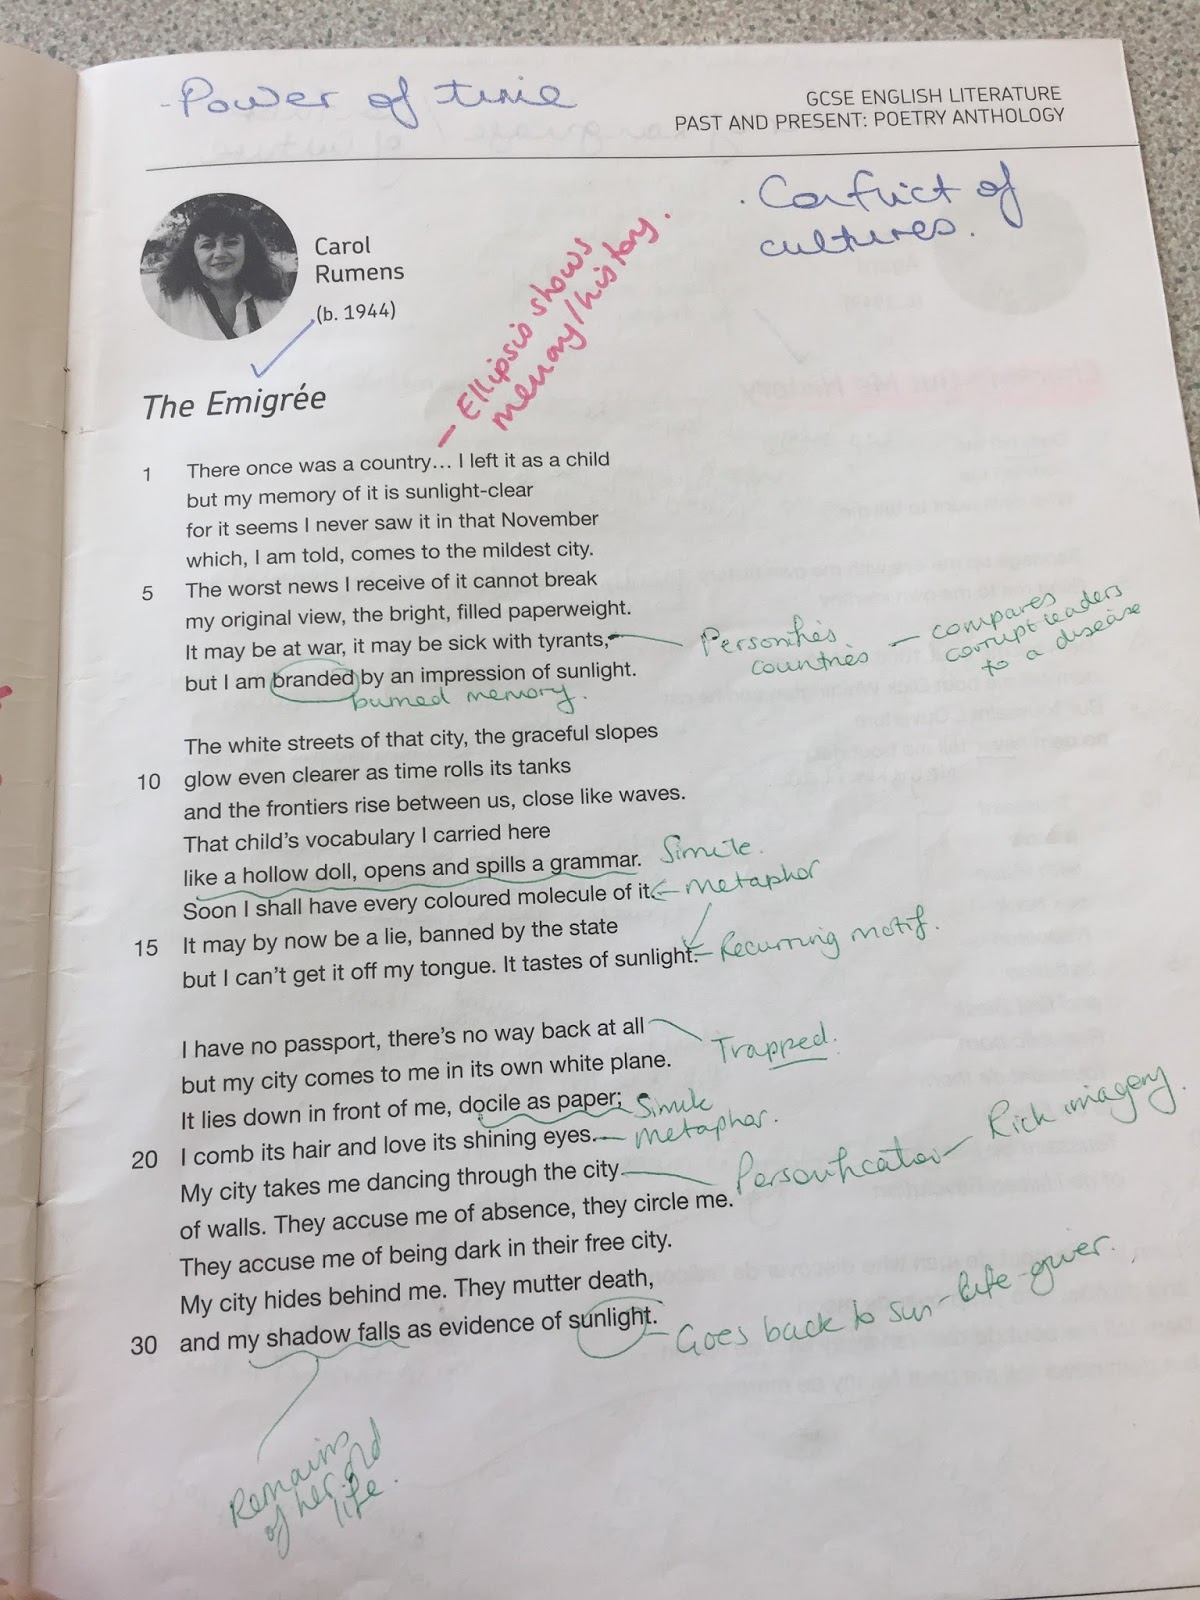 - Power of time
GCSE ENGLISH LITERATURE
PAST AND PRESENT: POETRY ANTHOLOGY
. Conflict of
cultures.
Carol
Rumens
(b. 1944)
- Ellipsis shows
memory/history.
The Emigrée
1 There once was a country… I left it as a child
but my memory of it is sunlight-clear
for it seems I never saw it in that November
which, I am told, comes to the mildest city.
5 The worst news I receive of it cannot break
my original view, the bright, filled paperweight.
It may be at war, it may be sick with tyrants,
Personifies
countries
- compares
corrupt leaders
to a disease
but I am branded by an impression of sunlight.
burned memory.
The white streets of that city, the graceful slopes
10 glow even clearer as time rolls its tanks
and the frontiers rise between us, close like waves.
That child's vocabulary I carried here
like a hollow doll, opens and spills a grammar. Simile.
Soon I shall have every coloured molecule of it. metaphor
15 It may by now be a lie, banned by the state
but I can't get it off my tongue. It tastes of sunlight. - Recurring motif.
I have no passport, there's no way back at all
Trapped.
but my city comes to me in its own white plane.
It lies down in front of me, docile as paper; Simile
20 I comb its hair and love its shining eyes. metaphor.
My city takes me dancing through the city
Personification - Rich imagery.
of walls. They accuse me of absence, they circle me.
They accuse me of being dark in their free city.
My city hides behind me. They mutter death,
30 and my shadow falls as evidence of sunlight.
- Goes back to sun - life-giver.
Remains
of her old
life.